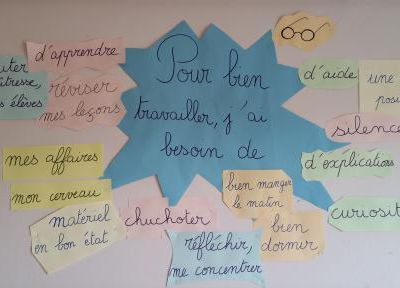 Pour bien
travailler, j'ai
besoin de
d'apprendre
uter
îtresse,
s élèves
réviser
mes leçons
mes affaires
mon cerveau
matériel
en bon état
chuchoter
réfléchir,
me concentrer
bien manger
le matin
bien
dormir
d'aide
une
posi
silence
d'explications
curiosit